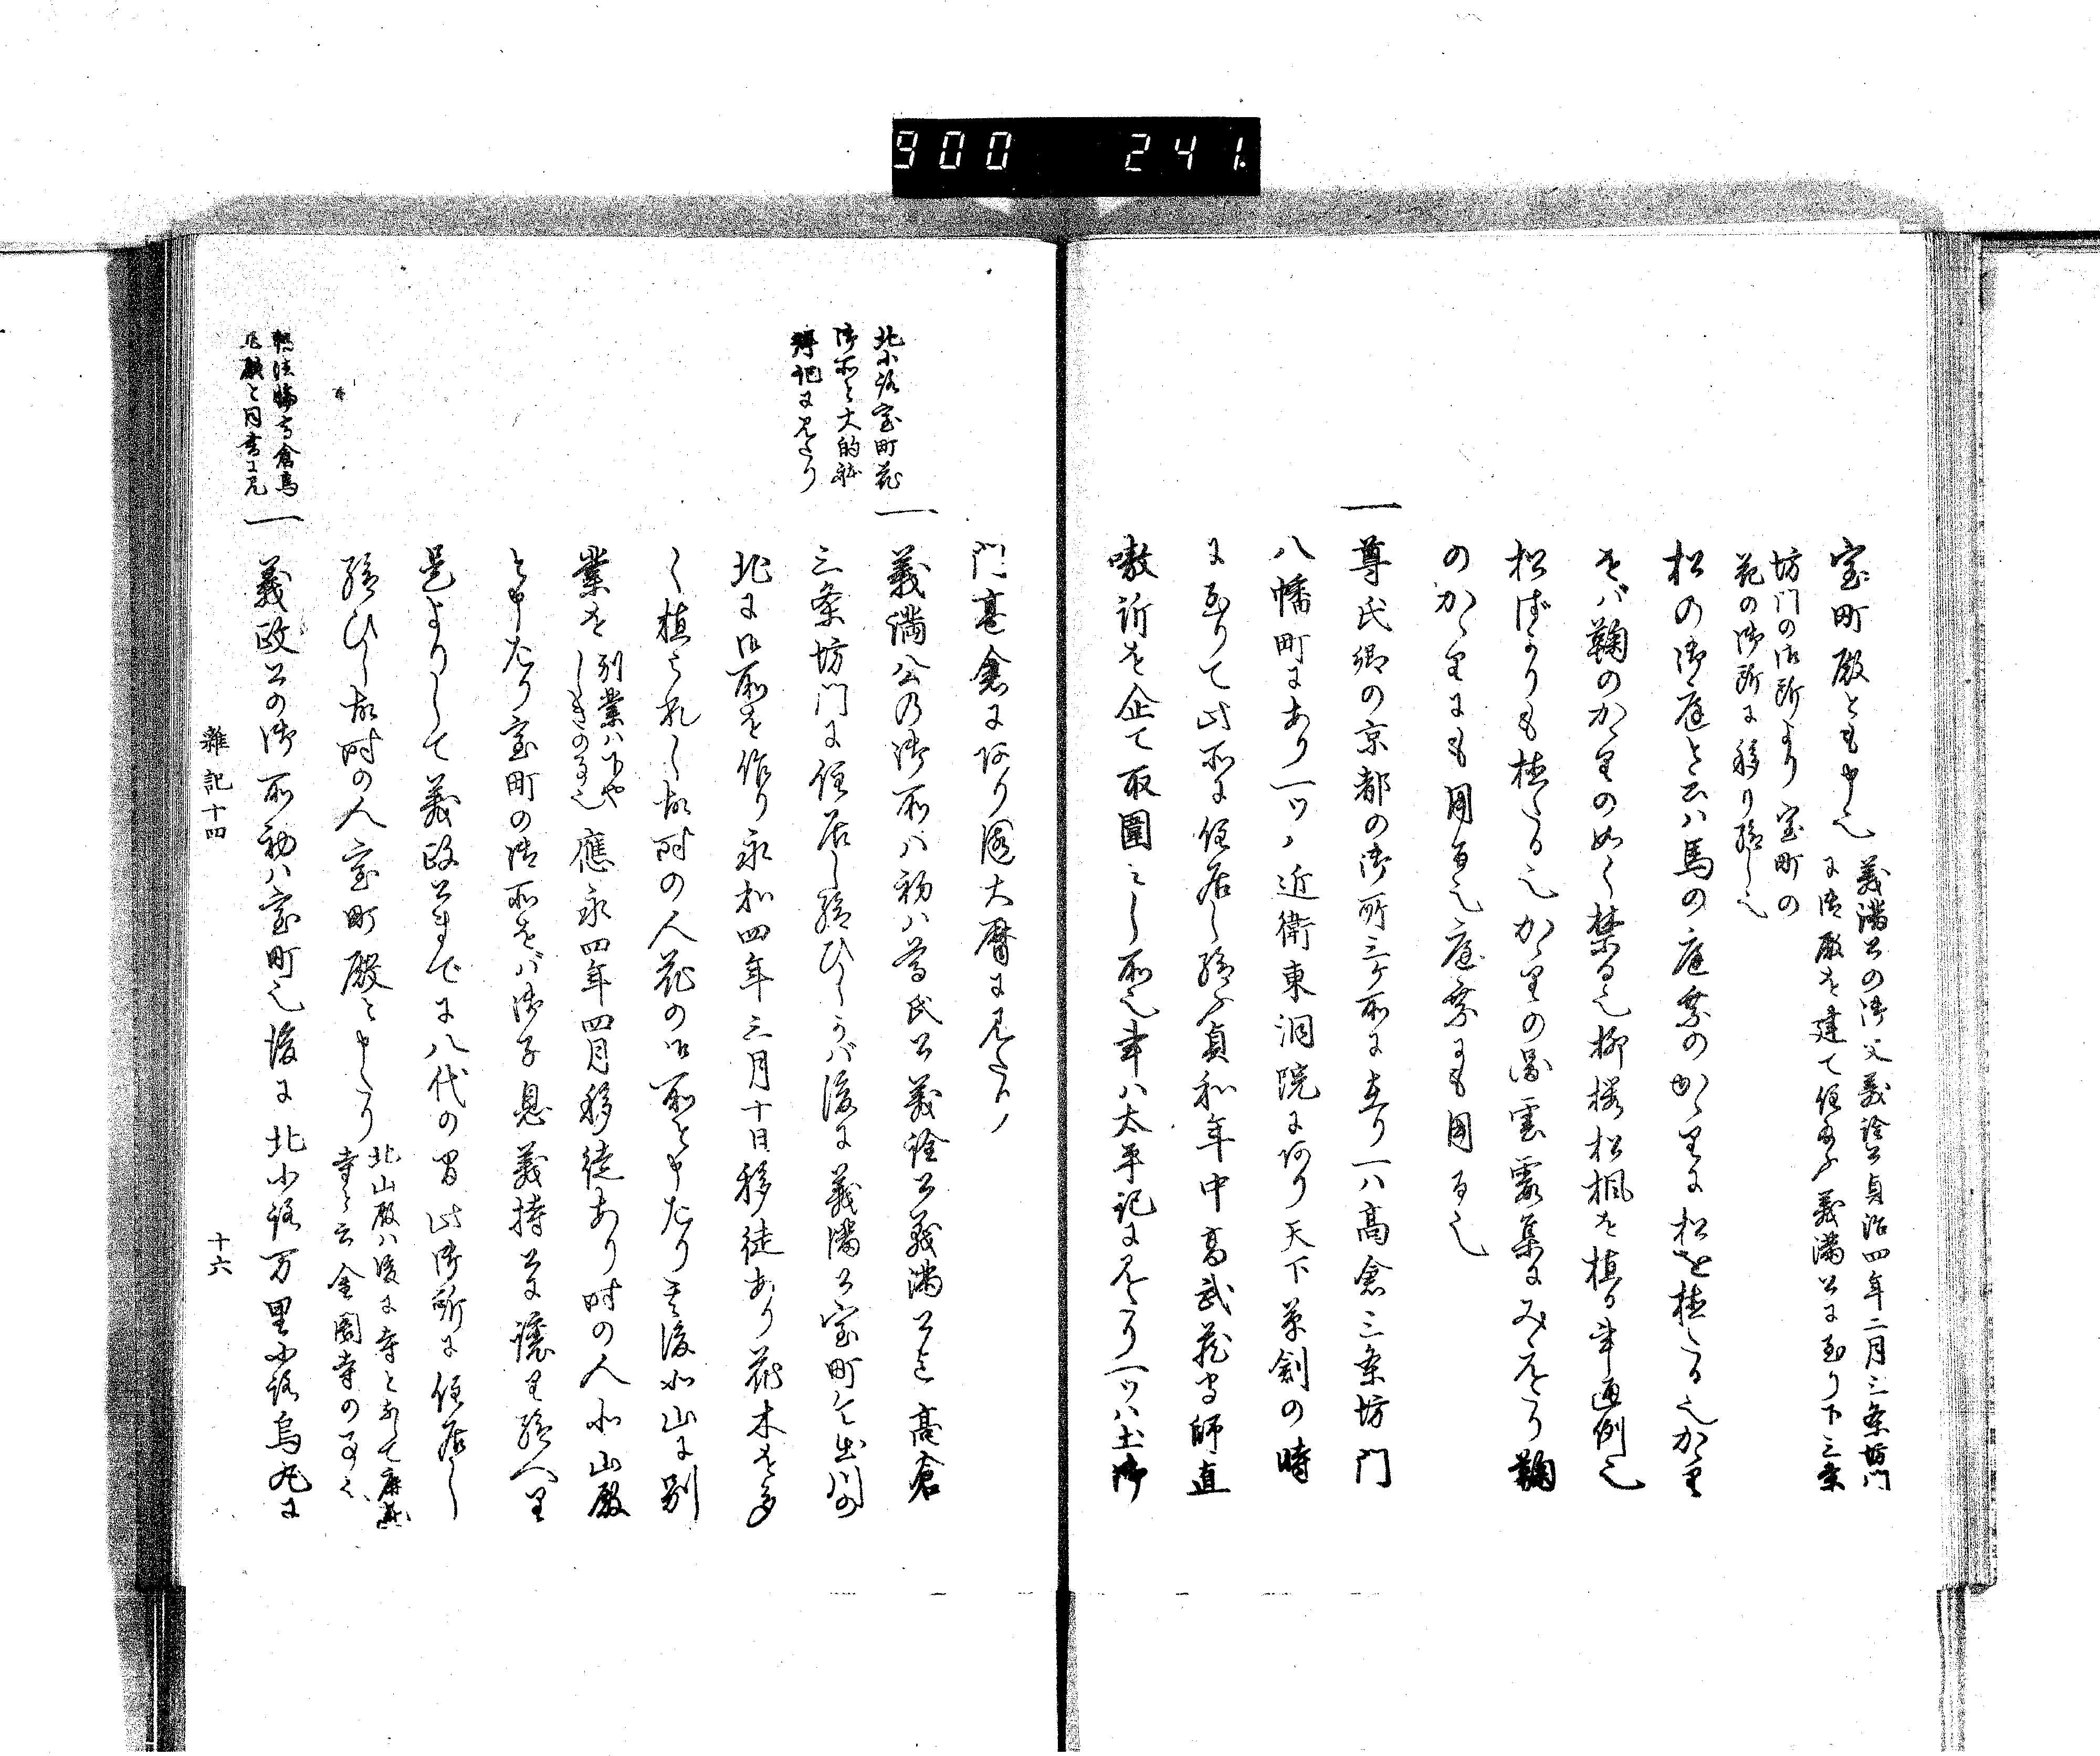 900 241.
室町殿とも申也 義満公の御父義詮公貞治四年二月三条坊門
に御殿を建て住給ふ義満公に至り下三条
坊門の御所より室町の
花の御所に移り給し也
松の御庭と云ハ馬の庭乗のかゝりに松を植たる也かゝり
をバ鞠のかゝりの如く禁る也柳桜松楓を植る事通例也
松ばかりも植たる也かゝりの図雲霞集にみえたり鞠
のかゝりにも用る也庭乗にも用る也
一 尊氏卿の京都の御所三ケ所に在り一ハ高倉三条坊門
八幡町にあり一ツハ近衛東洞院にあり天下草創の時
に至りて此所に住居し給ふ貞和年中高武蔵守師直
嗷訴を企て取囲ミし所也事ハ太平記に見えたり一ツハ土御
門高倉にあり園太暦に見えたり
一 義満公乃御所ハ初ハ尊氏公義詮公義満公迄高倉
三条坊門に住居し給ひしかバ後に義満公室町今出川の
北に御所を作り永和四年三月十日移徒あり花木を多
く植られし故時の人花の御所と申たり其後北山に別
業を 別業ハ下や
しきの事也 應永四年四月移徒あり時の人北山殿
と申たり室町の御所をバ御子息義持公に譲り給へり
是よりして義政公まで八代の間此御所に住居し
給ひし故時の人室町殿と申たり 北山殿ハ後に寺となして鹿苑
寺と云金閣寺の事也
一 義政公の御所初ハ室町也後に北小路万里小路烏丸に
北小路室町花
御所と大的
記に見えたり
高倉
殿と同書に見
雜記十四
十六